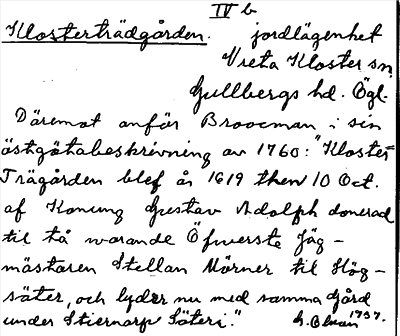 IV b
Klosterträdgården. jordlägenhet
Vreta Kloster sn.
Gullbergs hd. Ögl.
Däremot anför Broocman i sin
östgötabeskrivning av 1760: "Kloster=
Trägården blef år 1619 then 10 Oct.
af Konung Gustav Adolph donerad
til tå warande Öfwerste Jäg-
mästaren Stellan Mörner til Hög-
säter, och lyder nu med samma Gård
under Stiernarp Säteri."
1937.